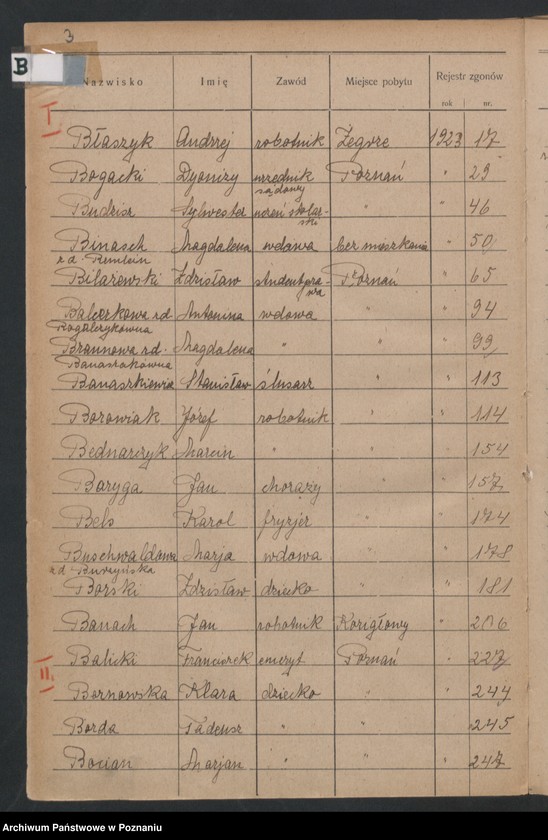 3
B
Nazwisko Imię Zawód Miejsce pobytu Rejestr zgonów
rok nr.
I
Błaszyk Andrzej robotnik Żegrze 1923 17
Bogacki Dyonizy urzędnik Poznań " 29
sądowy
Budzisz Sylwester uczeń stolar- " " 46
ski
Binasch Magdalena wdowa bez mieszkania " 50
zd. Remlein
Bilazewski Zdzisław student pra- Poznań " 65
wa
Balcerkowa zd Antonina wdowa " " 94
Rogalczykówna
Braunowa zd. Magdalena " " " 99
Banaszakówna
Banaszkiewicz Stanisław ślusarz " " 113
Borowiak Józef robotnik " " 114
Bednarczyk Marcin " " " 154
Baryga Jan chorąży " " 157
Bels Karol fryzjer " " 174
Buschwaldowa Marja wdowa " " 178
zd.
Borski Zdzisław dziecko " " 181
Banach Jan robotnik Koziegłowy " 206
II.
Balicki Franciszek emeryt Poznań " 227
Bornowska Klara dziecko " " 244
Borda Tadeusz " " " 245
Bocian Marjan " " " 247
Archiwum Państwowe w Poznaniu